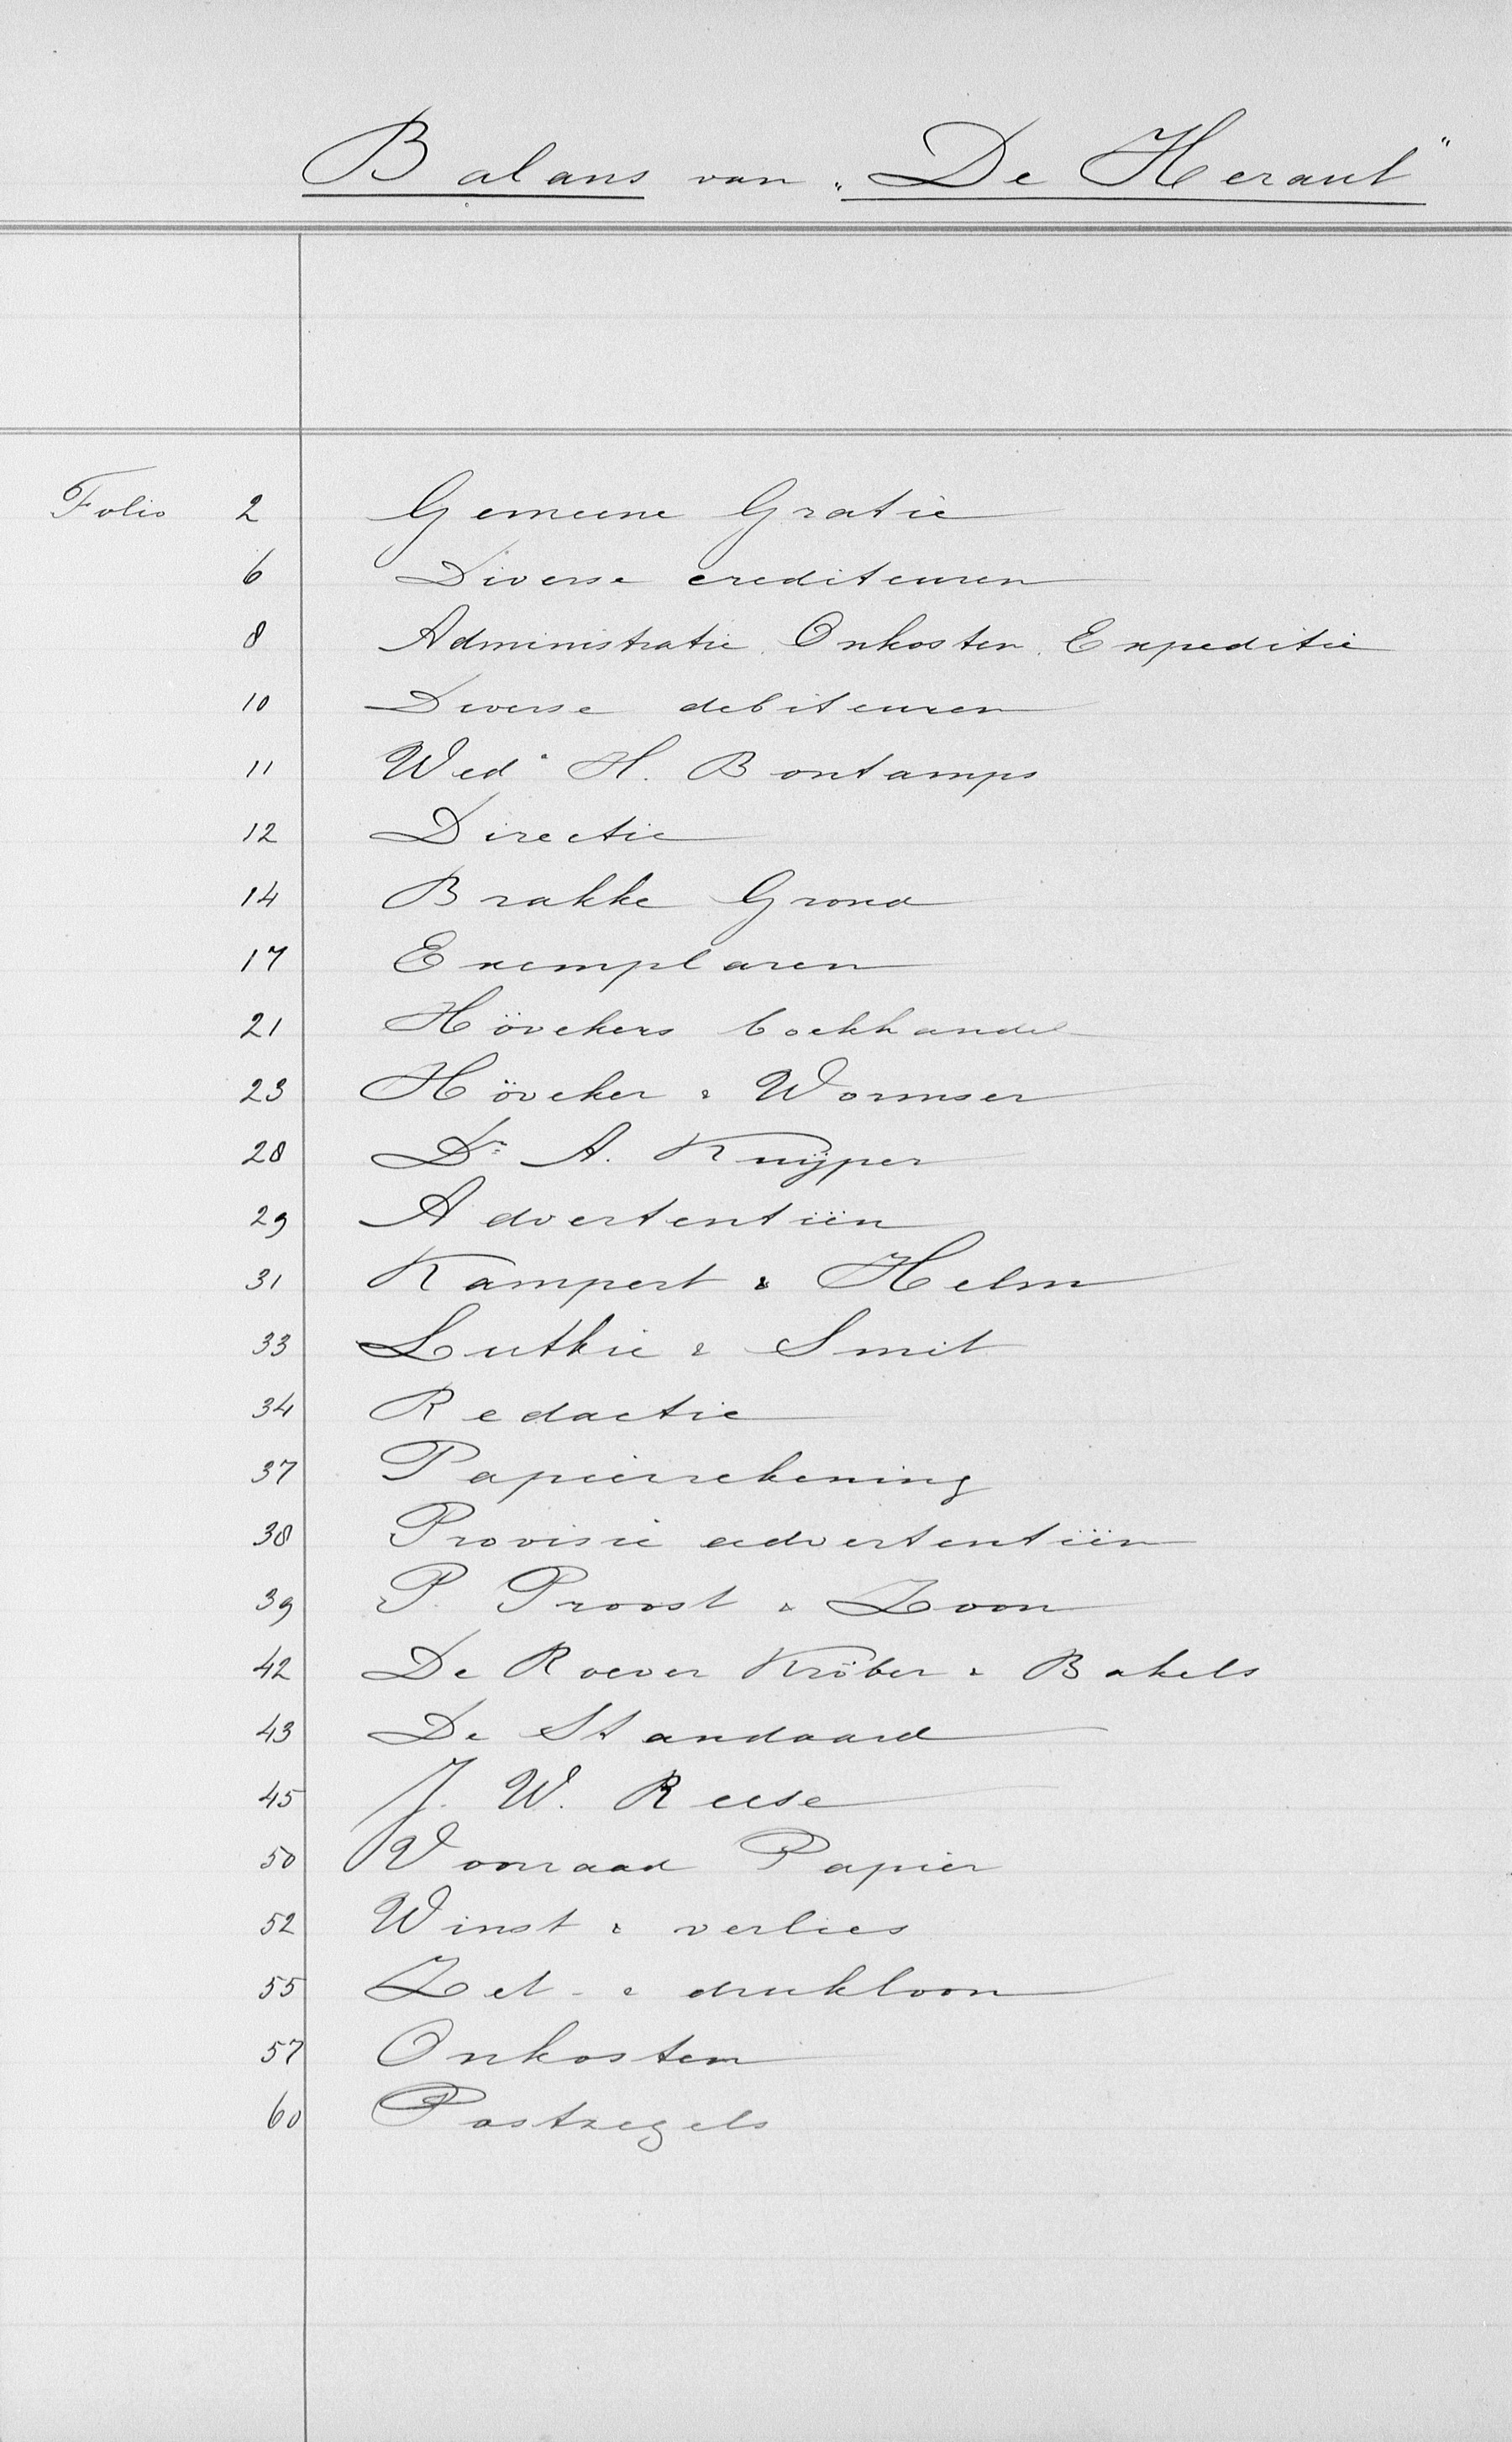 Balans van „De Heraut"
Folio 2 Gemeene Gratie
6 Diverse crediteuren
8 Administratie. Onkosten. Expeditie
10 Diverse debiteuren
11 Wed. H. Bontamps
12 Directie
14 Brakke Grond
17 Exemplaren
21 Hövekers boekhandel
23 Höveker & Wormser
28 Dr. A. Kuyper
29 Advertentiën
31 Kampert & Helm
33 Luthie & Smit
34 Redactie
37 Papierrekening
38 Provisie advertentiën
39 P. Proost & Zoon
42 De Roever Kröber & Bakels
43 De Standaard
45 J. W. Reese
50 Voorraad Papier
52 Winst & verlies
55 Zet- & drukloon
57 Onkosten
60 Postzegels